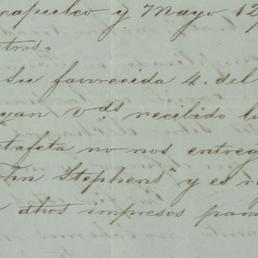 Acapulco y Mayo 12
tros.
Su favorecida 4. del
yan vds recibido l
tafeta no nos entreg
hn Stephens" y es
dhos impresos para